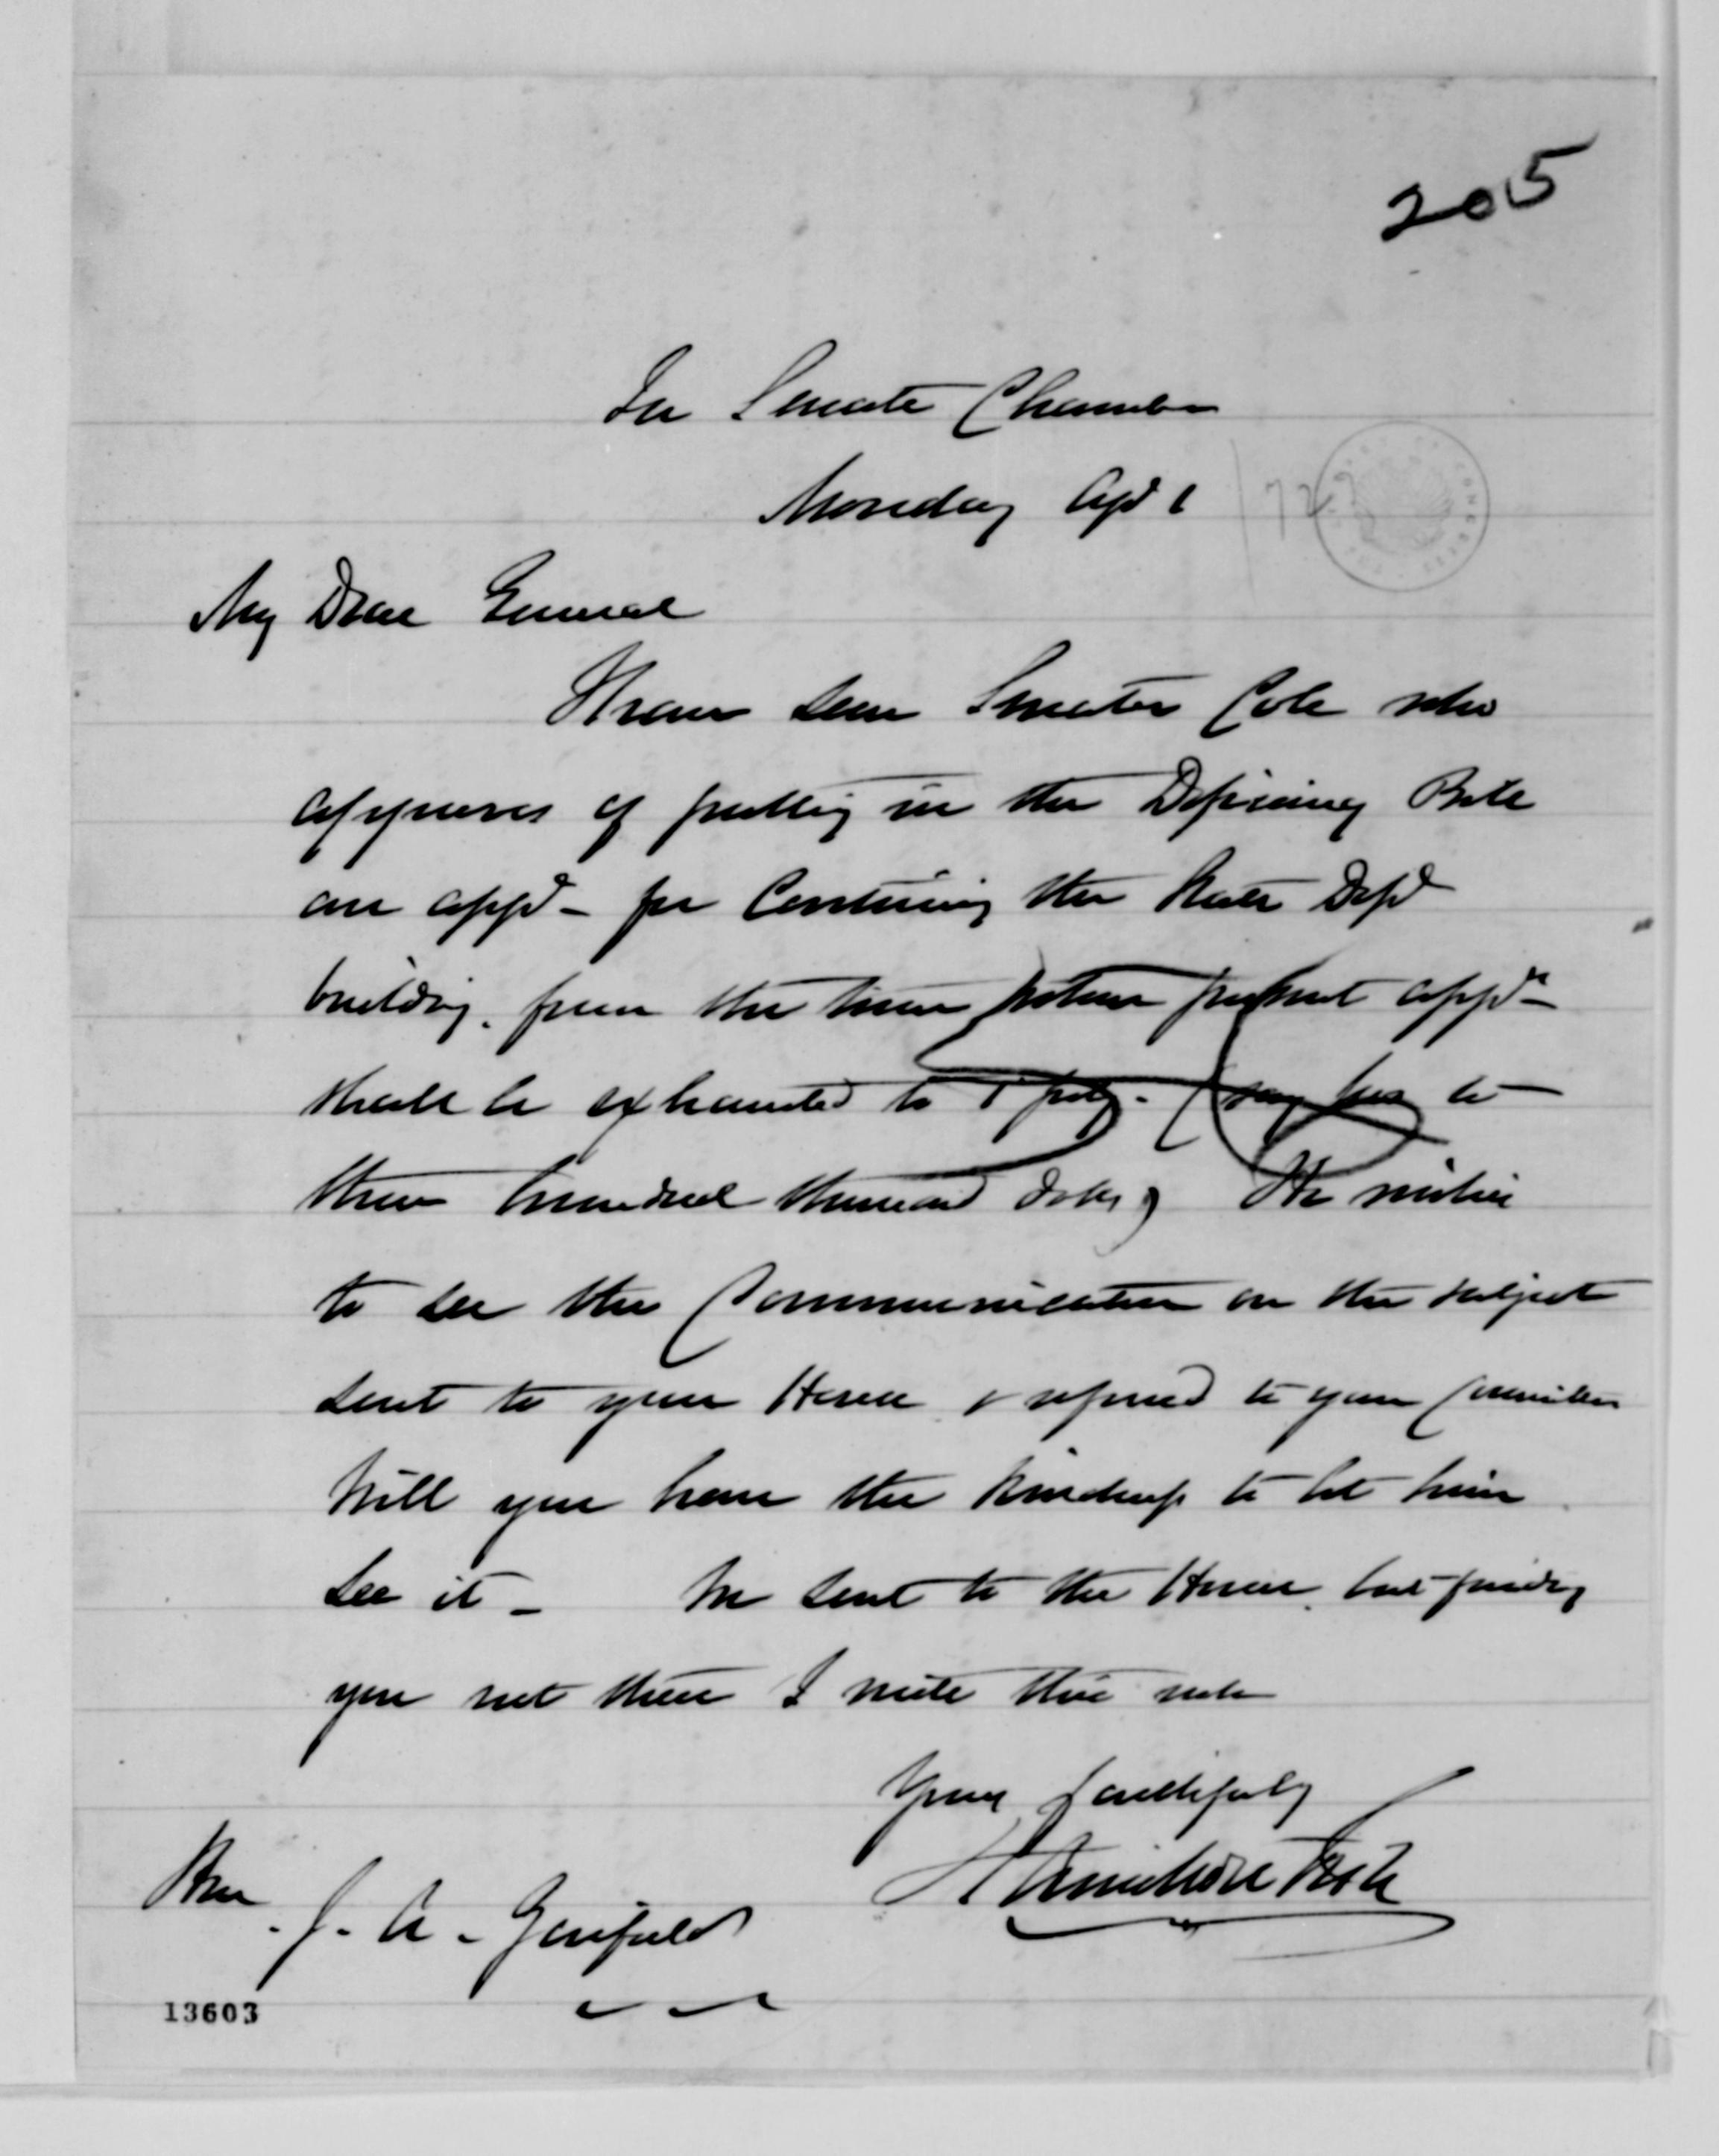 205
In Senate Chamber
Monday Apl 1 /72
My Dear General
I have seen Senator Cole who
approves of putting in the Deficiency Bill
an appn - for Continuing the State Dept
building, from the time when present appn
shall be exhausted to 1 July. (say two to
three hundred thousand dolrs) He wishes
to see the Communication on the subject
sent to your House & referred to your Committee
Will you have the kindness to let him
see it - We sent to the House, but finding
you not there I write this note
Yours faithfully
Hamilton Fish
Hon
J. A. Garfield
13603